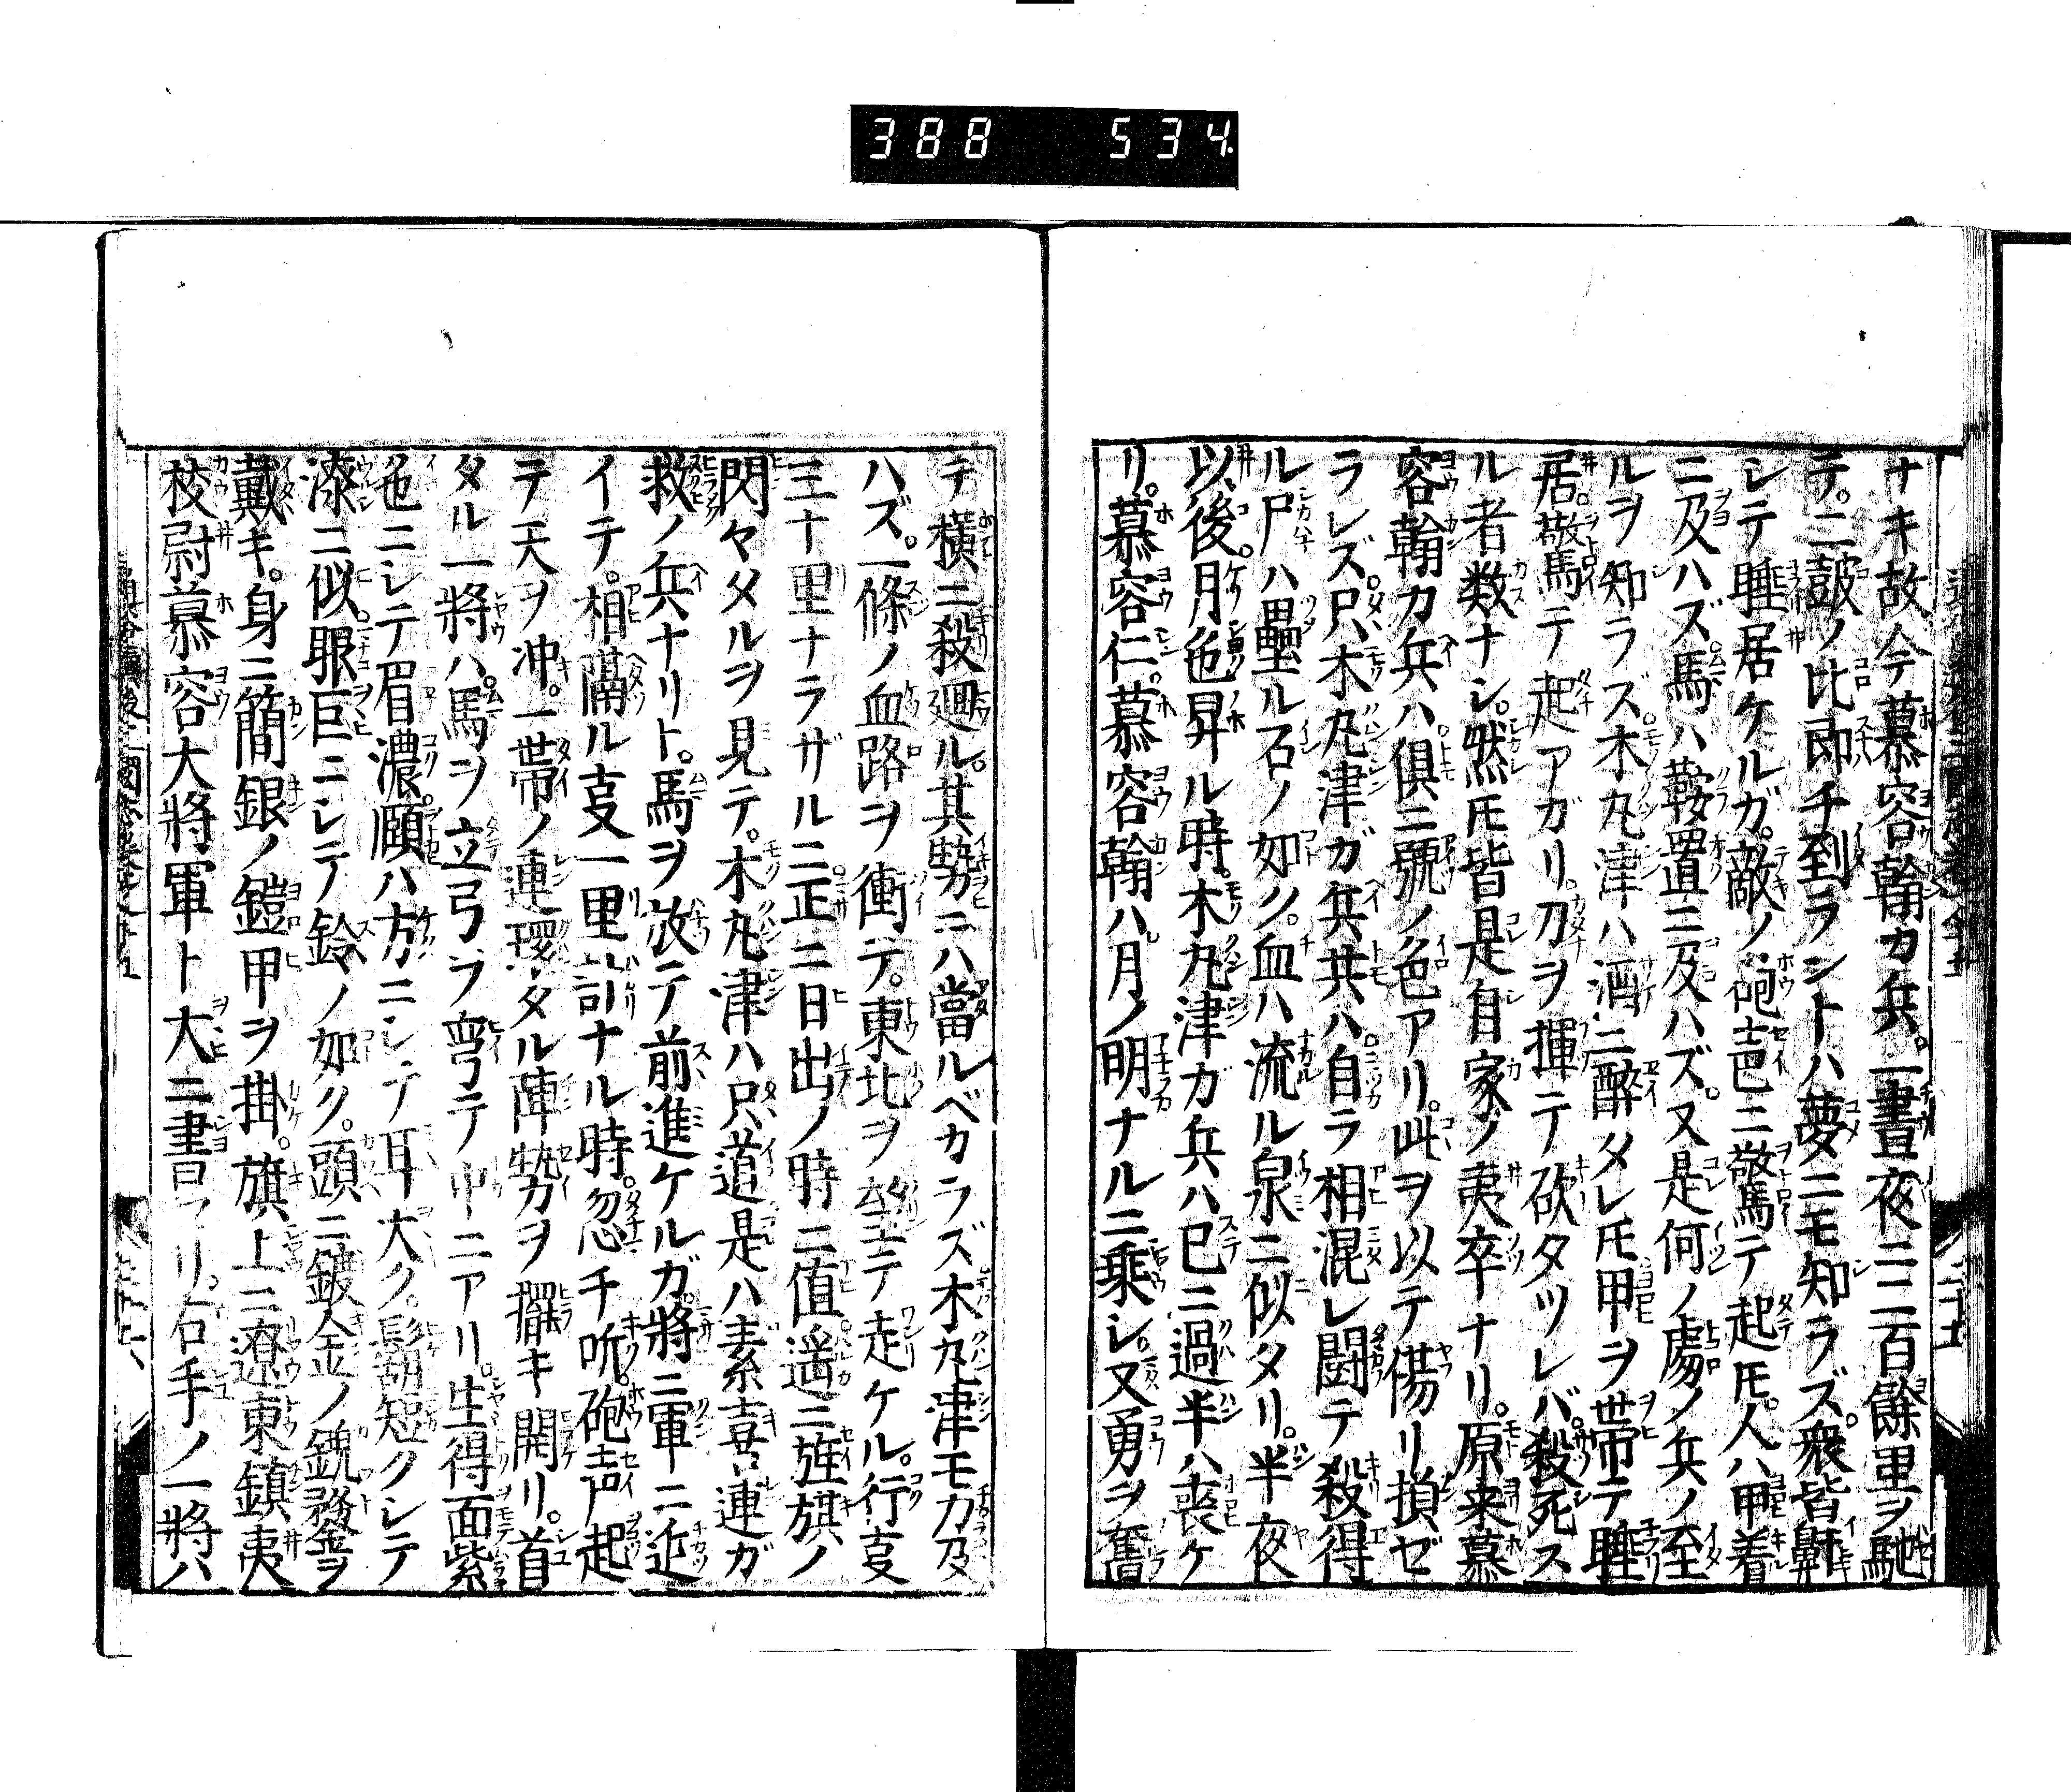 388 534
ナキ故今テ慕容翰カ兵。一晝夜ニ二百餘里ヲ馳
テ。二鼓ノ比即チ到ラントハ夢ニモ知ラズ。衆皆鼾
シテ睡居ケルガ。敵ノ砲声ニ驚テ起モ。人ハ甲着
ニ及ハズ馬ハ鞍置ニ及ハズ。又是何ノ處ノ兵ノ至
ルヲ知ラズ木丸津ハ酒ニ醉タレ𪜈甲ヲ帶テ睡
居。驚テ起アガリ。刀ヲ揮テ砍タツレバ。殺死ス
ル者数ナシ。然𪜈皆是自家ノ夷卒ナリ。原来慕
容翰カ兵ハ。俱ニ號ノ色アリ。此ヲ以テ傷リ損ゼ
ラレズ。只木丸津ガ兵共ハ。自ラ相混レ闘テ殺得
ル尸ハ壘ル石ノ如ク。血ハ流ル泉ニ似タリ。半夜
以後。月色昇ル時。木丸津ガ兵ハ已ニ過半ハ喪ケ
リ。慕容仁。慕容翰ハ。月ノ明ナルニ乘シ。又勇ヲ奮
テ橫ニ殺廻ル。其勢ニハ當ルベカラズ木丸津モ力及
ハズ。一條ノ血路ヲ衝デ。東北ヲ望テ走ケル。行叓
三十里ナラザルニ正ニ日出ノ時ニ値。遥ニ旌旗ノ
閃々メルヲ見テ。木丸津ハ只道是ハ素喜連ガ
救ノ兵ナリト。馬ヲ放テ前進ケルガ。將ニ軍ニ近
イテ。相隔ル叓一里計ナル時。忽チ吮。砲声起
テ天ヲ冲。一帶ノ連環タル陣勢ヲ擺キ開リ。首
タル一將ハ。馬ヲ立弓ヲ彎テ中ニアリ。生得面紫
色ニシテ眉濃。頤ハ方ニシテ耳大ク。鬍短クシテ
漆ニ似。眼巨ニシテ鈴ノ如ク。頭ニ鍍金ノ兜鍪ヲ
戴キ。身ニ簡銀ノ鎧甲ヲ掛。旗上ニ遼東鎮夷
校尉慕容大將軍ト大ニ書セリ。右手ノ一將ハ